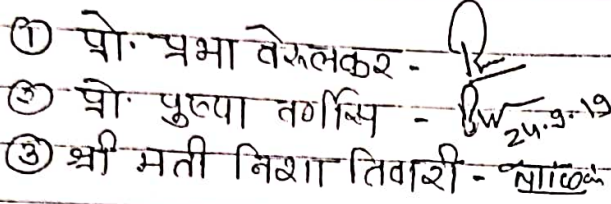 ① प्रो. प्रभा वेरुलकर -
② प्रो. पुष्पा तर्गीस - 24.9.19
③ श्री मती निशा तिवारी -